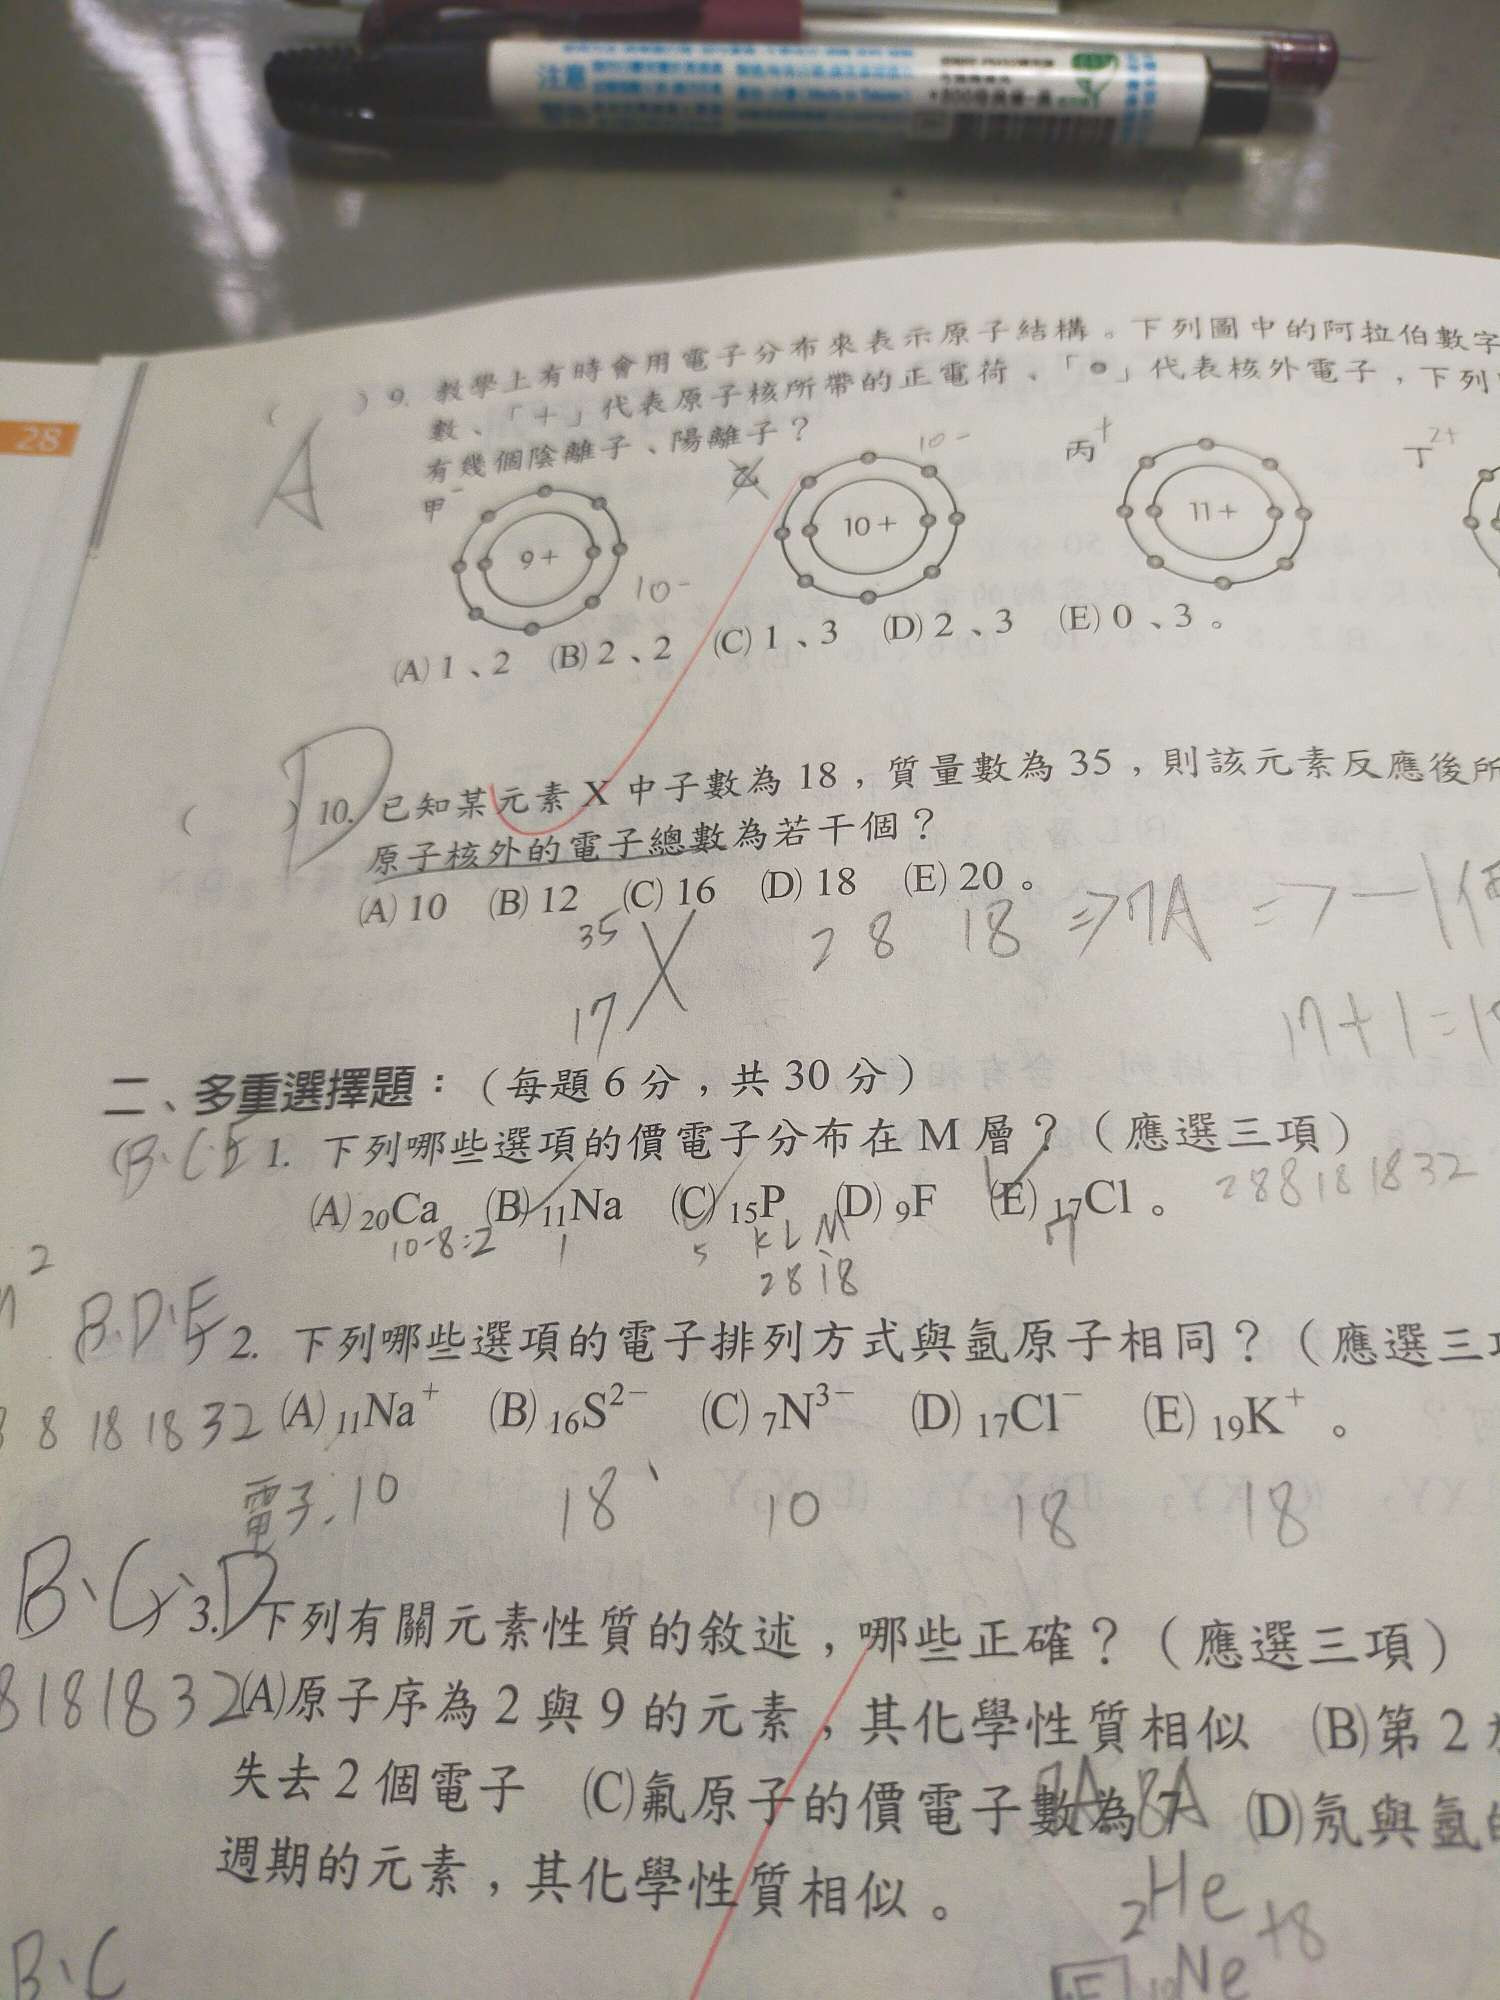 注意
28
( ) 9. 教學上有時會用電子分布來表示原子結構。下列圖中的阿拉伯數字
數、「+」代表原子核所帶的正電荷、「●」代表核外電子，下列
有幾個陰離子、陽離子？
A
甲 - 9+ 10-
乙 10+ 10-
丙 + 11+
丁 2+
(A) 1、2 (B) 2、2 (C) 1、3 (D) 2、3 (E) 0、3。
D
( ) 10. 已知某元素 X 中子數為 18，質量數為 35，則該元素反應後所
原子核外的電子總數為若干個？
(A) 10 (B) 12 (C) 16 (D) 18 (E) 20。
35 17 X 2 8 18 ⇒7A ⇒
17+1=
二、多重選擇題：（每題 6 分，共 30 分）
(B.C.E 1. 下列哪些選項的價電子分布在 M 層？（應選三項）
(A) 20Ca (B) 11Na (C) 15P (D) 9F (E) 17Cl。
2 8 8 18 18 32
10-8=2 1 5 K L M 7
2 8 18
B.D.E 2. 下列哪些選項的電子排列方式與氬原子相同？（應選三
(A) 11Na⁺ (B) 16S²⁻ (C) 7N³⁻ (D) 17Cl⁻ (E) 19K⁺。
8 18 18 32
電子.10 18 10 18 18
B、C、D 3. 下列有關元素性質的敘述，哪些正確？（應選三項）
8 18 18 32
(A)原子序為 2 與 9 的元素，其化學性質相似 (B)第 2
失去 2 個電子 (C)氟原子的價電子數為 7 (D)氖與氬
7A 8A
週期的元素，其化學性質相似。
2He
+8
10Ne
B、C